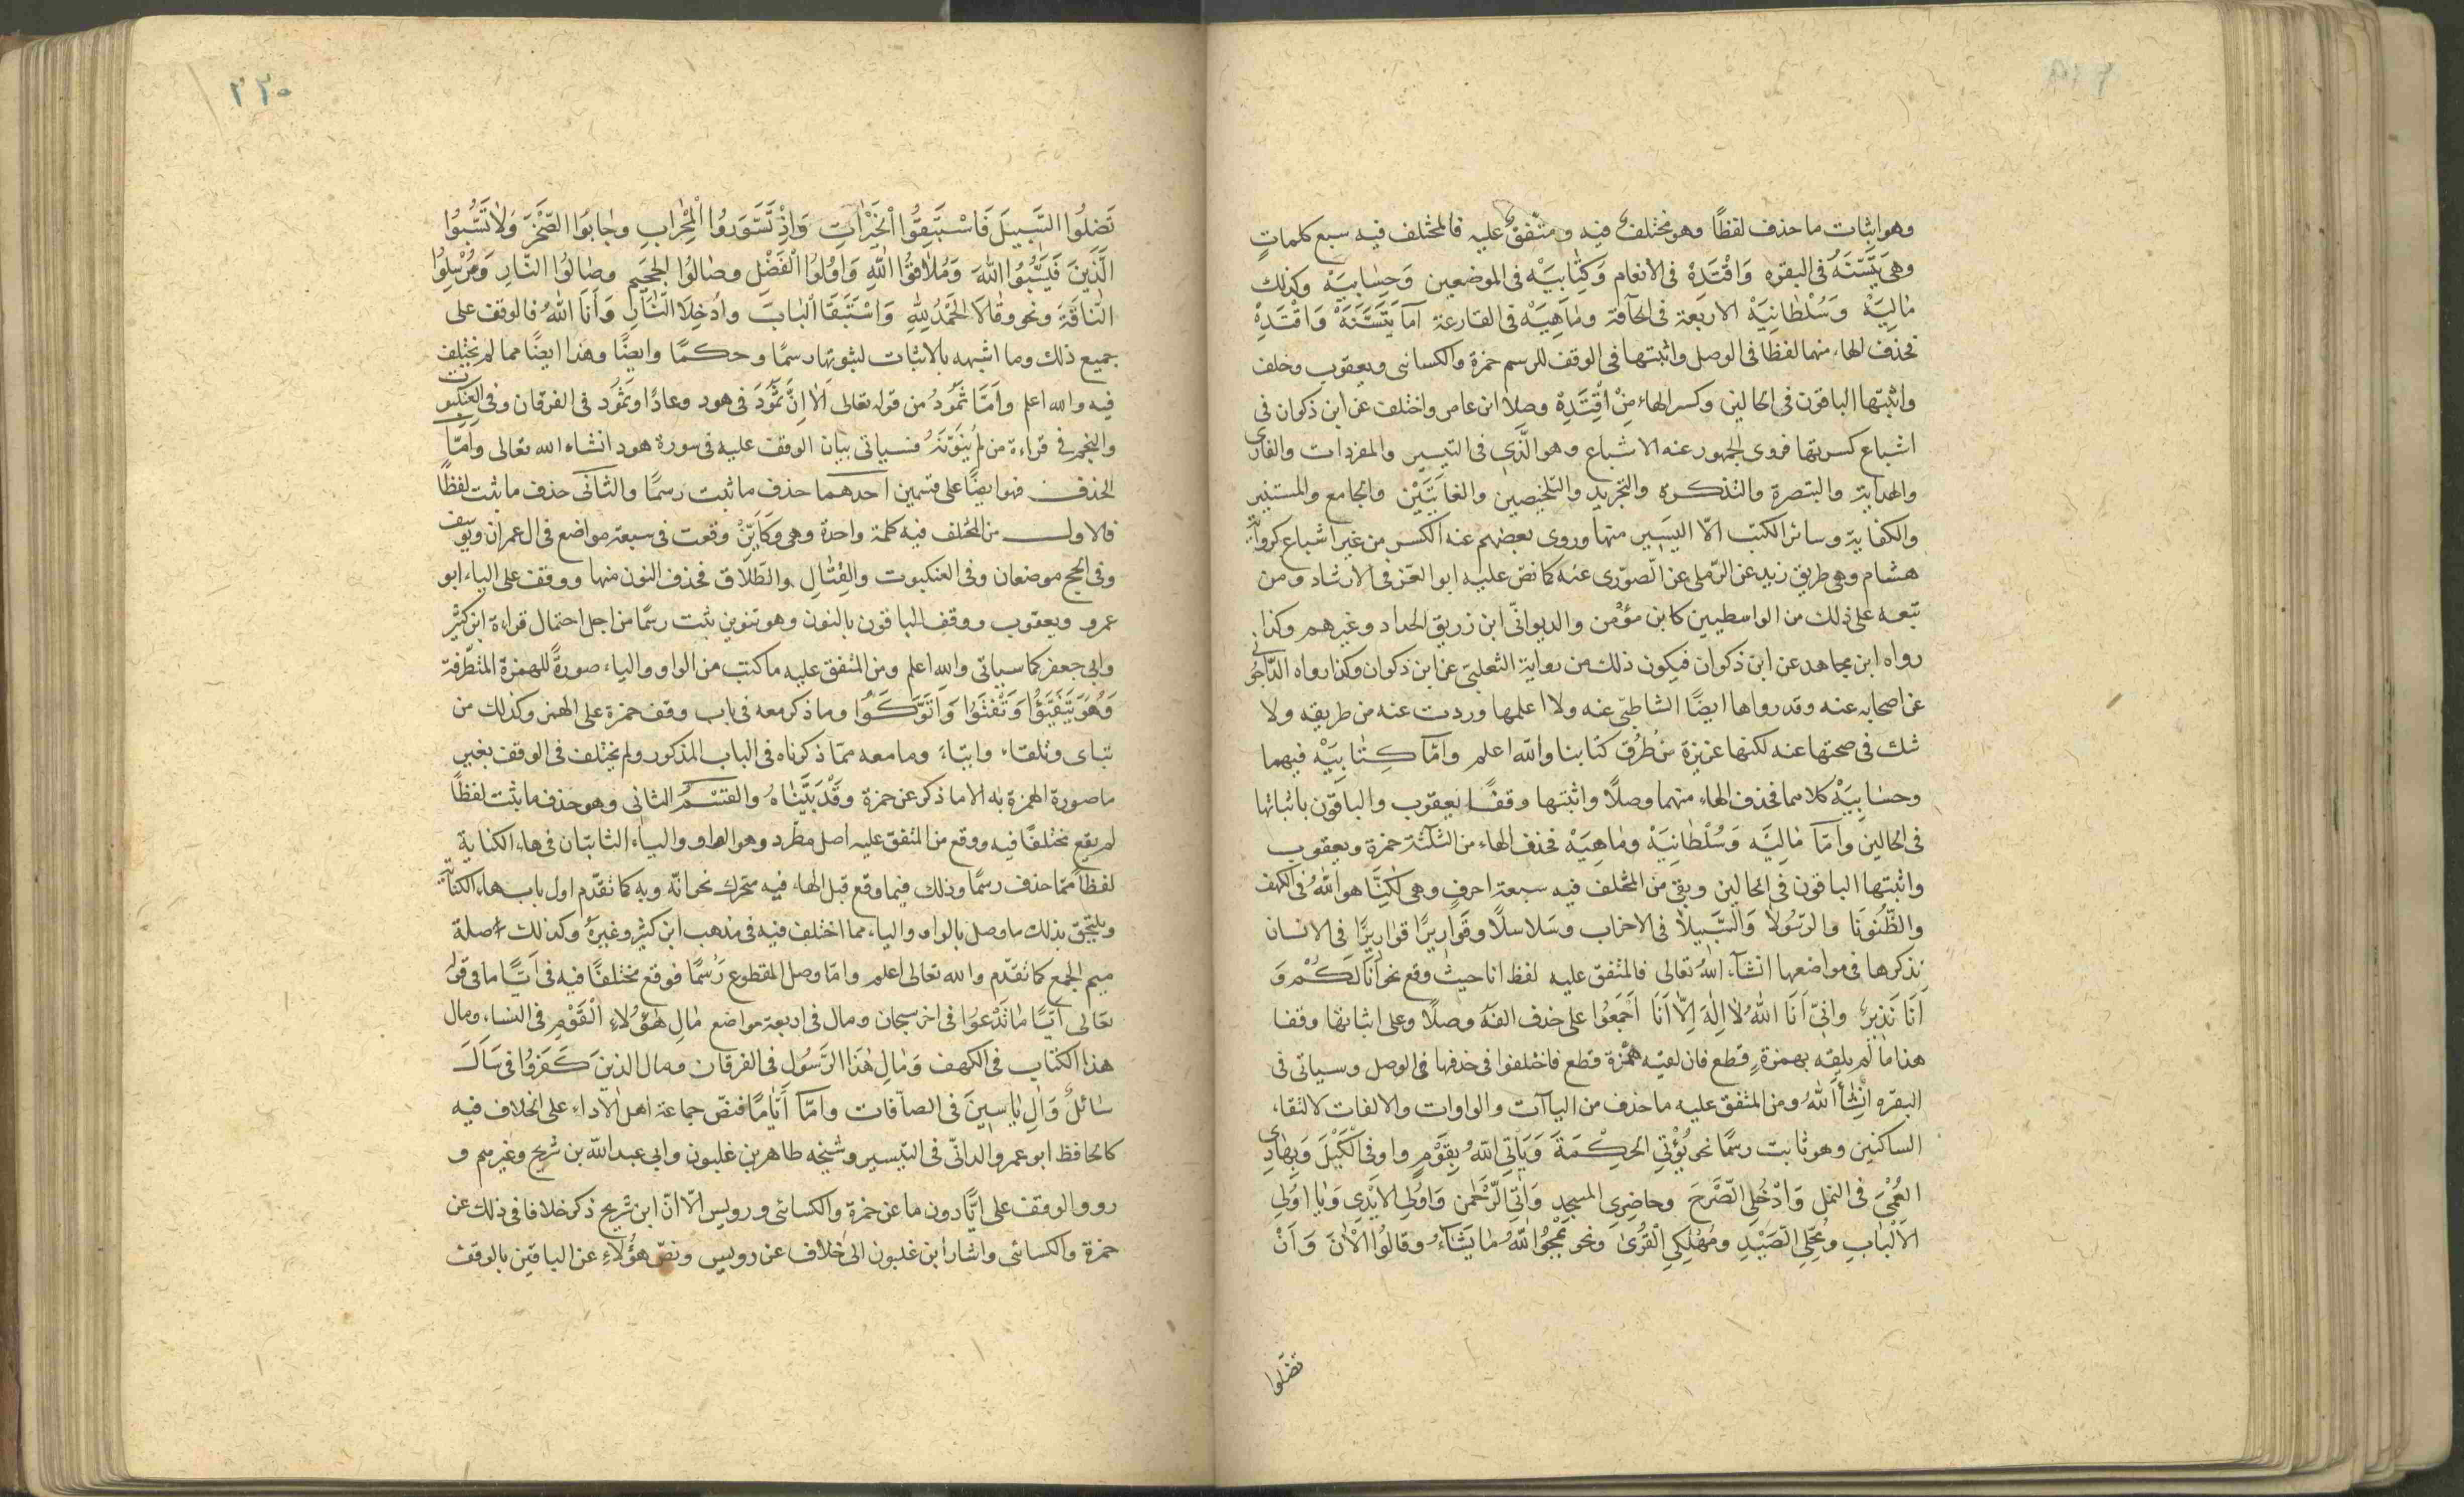 وهو اثبات ما حذف لفظًا وهو مختلف فيه ومتفق عليه فالمختلف فيه سبع كلماتٍ
وهى يَتَسَنَّه فى البقره وَاقْتَدِهْ فى الانعام وَكِتَابِيَهْ فى الموضعين وَحِسَابِيَهْ وكذلك
مَالِيَهْ وَسُلْطَانِيَهْ الاربعة فى الحآقة ومَاهِيَهْ فى القارعة اما يَتَسَنَّهْ وَاقْتَدِهْ
فحذف الهاء منهما لفظا فى الوصل واثبتها فى الوقف للرسم حمزة والكسائى ويعقوب وخلف
واثبتها الباقون فى الحالين وكسر الهاء مِنْ اقْتَدِهْ وصلا ابن عامر واختلف عن ابن ذكوان فى
اشباع كسرتها فروى الجمهور عنه الاشباع وهو الَّذى فى التيسير والمفردات والهادى
والهداية والتبصرة والتذكرة والتجريد والتلخيصين والغايَتَيْن والجامع والمستنير
والكفاية وسائر الكتب الّا اليَسير منها وروى بعضهم عنه الكسر من غير اشباع كرواية
هشام وهى طريق زيد عن الرّملى عن الصوّرى عنه كما نصّ عليه ابو العز فى الارشاد ومن
تبعه على ذلك من الواسطيين كابن مؤمن والديوانّى ابن زريق الحداد وغيرهم وكذا
رواه ابن مجاهد عن ابن ذكوان فيكون ذلك من رواية الثعلبىّ عن ابن ذكوان وكذا رواه الدّاجونى
عن اصحابه عنه وقد رواها ايضًا الشاطبّى عنه ولا اعلمها وردت عنه من طريقه ولا
شك فى صحتها عنه لكنها عزيزة من طُرُق كتابنا والله اعلم وامّا كِتَابِيَهْ فيهما
وحسَابِيَهْ كلاهما فحذف الهاء منهما وصلًا واثبتها وقفًا يعقوب والباقون باثباتها
فى الحالين وامّا مَالِيَه وَسُلْطَانِيَهْ ومَاهِيَهْ فحذف الهاء من الثلثة حمزة ويعقوب
واثبتها الباقون فى الحالين وبقى من المختلف فيه سبعة احرفٍ وهى لكِنَّا هو اللهُ فى الكهف
والظُّنُونَا والرَّسُولَا وَالسَّبيلَا فى الاحزاب وسَلاسلًا وقَوارِيرًا قوارِيرًا فى الانسان
نذكرها فى مواضعها انشآء اللهُ تعالى فالمتفق عليه لفظ انا حيث وقع نحو أنَا لَكُمْ وَ
اَنَا نَذِيرٌ وانِّى اَنَا اللهُ لَا اِلهَ اِلَّا اَنَا اَجْمَعُوا على حذف الفه وصلًا وعلى اثباتها وقفا
هذا ما لم يلقه بهمزة قطع فان لقيه همزة قطع فاختلفوا فى حذفها فى الوصل وسياتى فى
البقره انشأ اللهُ ومن المتفق عليه ما حذف من اليآات والواوات والالفات لالتقاء
الساكنين وهو ثابت رسمًا نحو يُؤْتِى الحِكْمَةَ وَيَاتِى اللهُ بِقَوْمٍ واوفى الْكَيْلَ وَبِهادِى
العُمْىِ فى النمل وَادْخُلِى الصَّرْحَ وحاضِرِى المسجد وَاتِى الرَّحْمن وَاوُلِى الايْدِى وَيا اوُلِى
الاَلْبَابِ ومُحِلّى الصَّيْدِ ومُهْلِكِى الْقُرَى ونحو يَمْحُوا اللهُ مَا يَشَاءُ وقالُوا الْانَ وَاَنْ
تضلوا
٢٢٠
تَضِلُّوا السَّبيلَ فَاسْتَبَقُوا الْخَيْرَاتِ وَاِذْ تَسَوَّرُوا الْمِحْرَابِ وجَابُوا الصَّخْرَ وَلَا تَسُبُّوا
الَّذِينَ فَيَسُبُّوا اللهَ وَمُلَاقُوا اللهِ وَاوُلُوا الْفَضْلِ وصَالُوا الجَحيم وصَالُوا النَّارِ وَمُرْسِلُوا
النَّاقَةَ ونحو وقَالَا الحَمْدُ لِلّهِ وَاسْتَبَقَا الْبَابَ وادْخُلَا النَّارَ وَاَنَا اللهُ فالوقف على
جميع ذلك وما اشبهه بالاثبات لثبوتها رسمًا وحكمًا وايضًا وهذا ايضًا مما لم نختلف
فيه والله اعلم وامَّا ثَمُودُ من قوله تعالى اَلَا اِنَّ ثَمُودَ فى هود وعادًا وثَمُود فى الفرقان وفى العنكبوت
والنجم فى قراءة من لم يُنَوِّنْهُ فسياتى بيان الوقف عليه فى سورة هود انشاء الله تعالى وامّا
الحذف فهو ايضًا على قسمين احدهما حذف ما ثبت رسمًا والثانى حذف ما ثبت لفظًا
فالاول من المختلف فيه كلمة واحدة وهى وَكَايِّنْ وقعت فى سبعة مواضع فى ال عمران ويوسف
وفى الحج موضعان وفى العنكبوت والقِتَالِ والطّلَاق فحذف النون منها ووقف على الياء ابو
عمرو ويعقوب ووقف الباقون بالنون وهو تنوين ثبت رسمًا من اجل احتمال قراءة ابن كثير
وابى جعفر كما سياتى والله اعلم ومن المتفق عليه ما كتب من الواو والياء صورةً للهمزة المتطرفة
وَهُوَ يَتَفَيَّؤُا وَتَفْتَؤُا وَاَتَوَكَّؤُا وما ذكر معه فى باب وقف حمزة على الهمز وكذلك من
نباى وتلقاء وايتاء وما معه ممّا ذكرناه فى الباب المذكور ولم يختلف فى الوقف بغير
ما صورة الهمزة به الا ما ذكر عن حمزة وَقَدْ بَيَّنَاهُ والقسْمُ الثانى وهو حذف ما ثبت لفظًا
لم يقع مختلفًا فيه ووقع من المتفق عليه اصل مطّرد وهو الواو والياء الثابتان فى هاء الكناية
لفظًا ممّا حذف رسمًا وذلك فيما وقع قبل الهاء فيه متحرك نحو انّه وبه كما تقدّم اول باب هاء الكناية
ويلتحق بذلك ما وصل بالواو والياء مما اختلف فيه فى مذهب ابن كثير وغيره وكذلك صلة
ميم الجمع كما تقدّم والله تعالى اعلم وامّا وصل المقطوع رسمًا فوقع مختلفًا فيه فى اَيًّا ما فى قوله
تعالى اَيًّا مَا تَدْعُوا فى اخر سبحان ومال فى اربعة مواضع مَالِ هَؤُلَاءِ الْقَوْمِ فى النساء ومال
هذا الكتاب فى الكهف وَمَالِ هَذَا الرَّسُولِ فى الفرقان فمال الذين كَفَرُوا فى سَاَلَ
سَائلٌ وَالِ يَاسِينَ فى الصآفات وامّا اَيَّامًا فنصّ جماعة اهل الاداء على الخلاف فيه
كالحافظ ابو عمرو الدانّى فى التيسير وشيخه طاهر بن غلبون وابى عبد الله بن شريح وغيرهم و
رووا الوقف على ايًّا دون ما عن حمزة والكسائى ورويس الّا انّ ابن شريح ذكر خلافا فى ذلك عن
حمزة والكسائى واشار ابن غلبون الى خلاف عن رويس ونصّ هؤلاءِ عن الباقين بالوقف